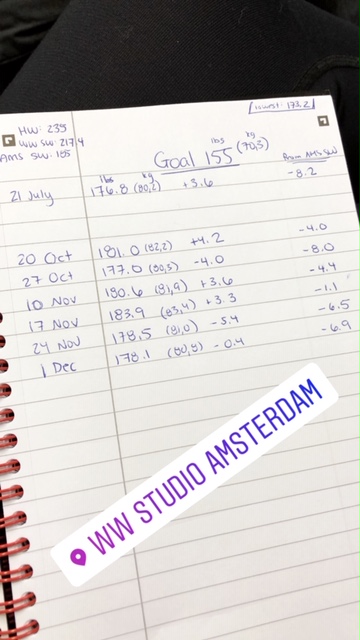 HW: 235
WW SW: 217.4
Ams SW: 185
Lowest: 173.2
lbs kg
Goal 155 (70,3)
From AMS SW
lbs kg
21 July 176.8 (80,2) +3.6 -8.2
20 Oct 181.0 (82,2) +4.2 -4.0
27 Oct 177.0 (80,5) -4.0 -8.0
10 Nov 180.6 (81,9) +3.6 -4.4
17 Nov 183.9 (83,4) +3.3 -1.1
24 Nov 178.5 (81,0) -5.4 -6.5
1 Dec 178.1 (80,8) -0.4 -6.9
WW STUDIO AMSTERDAM